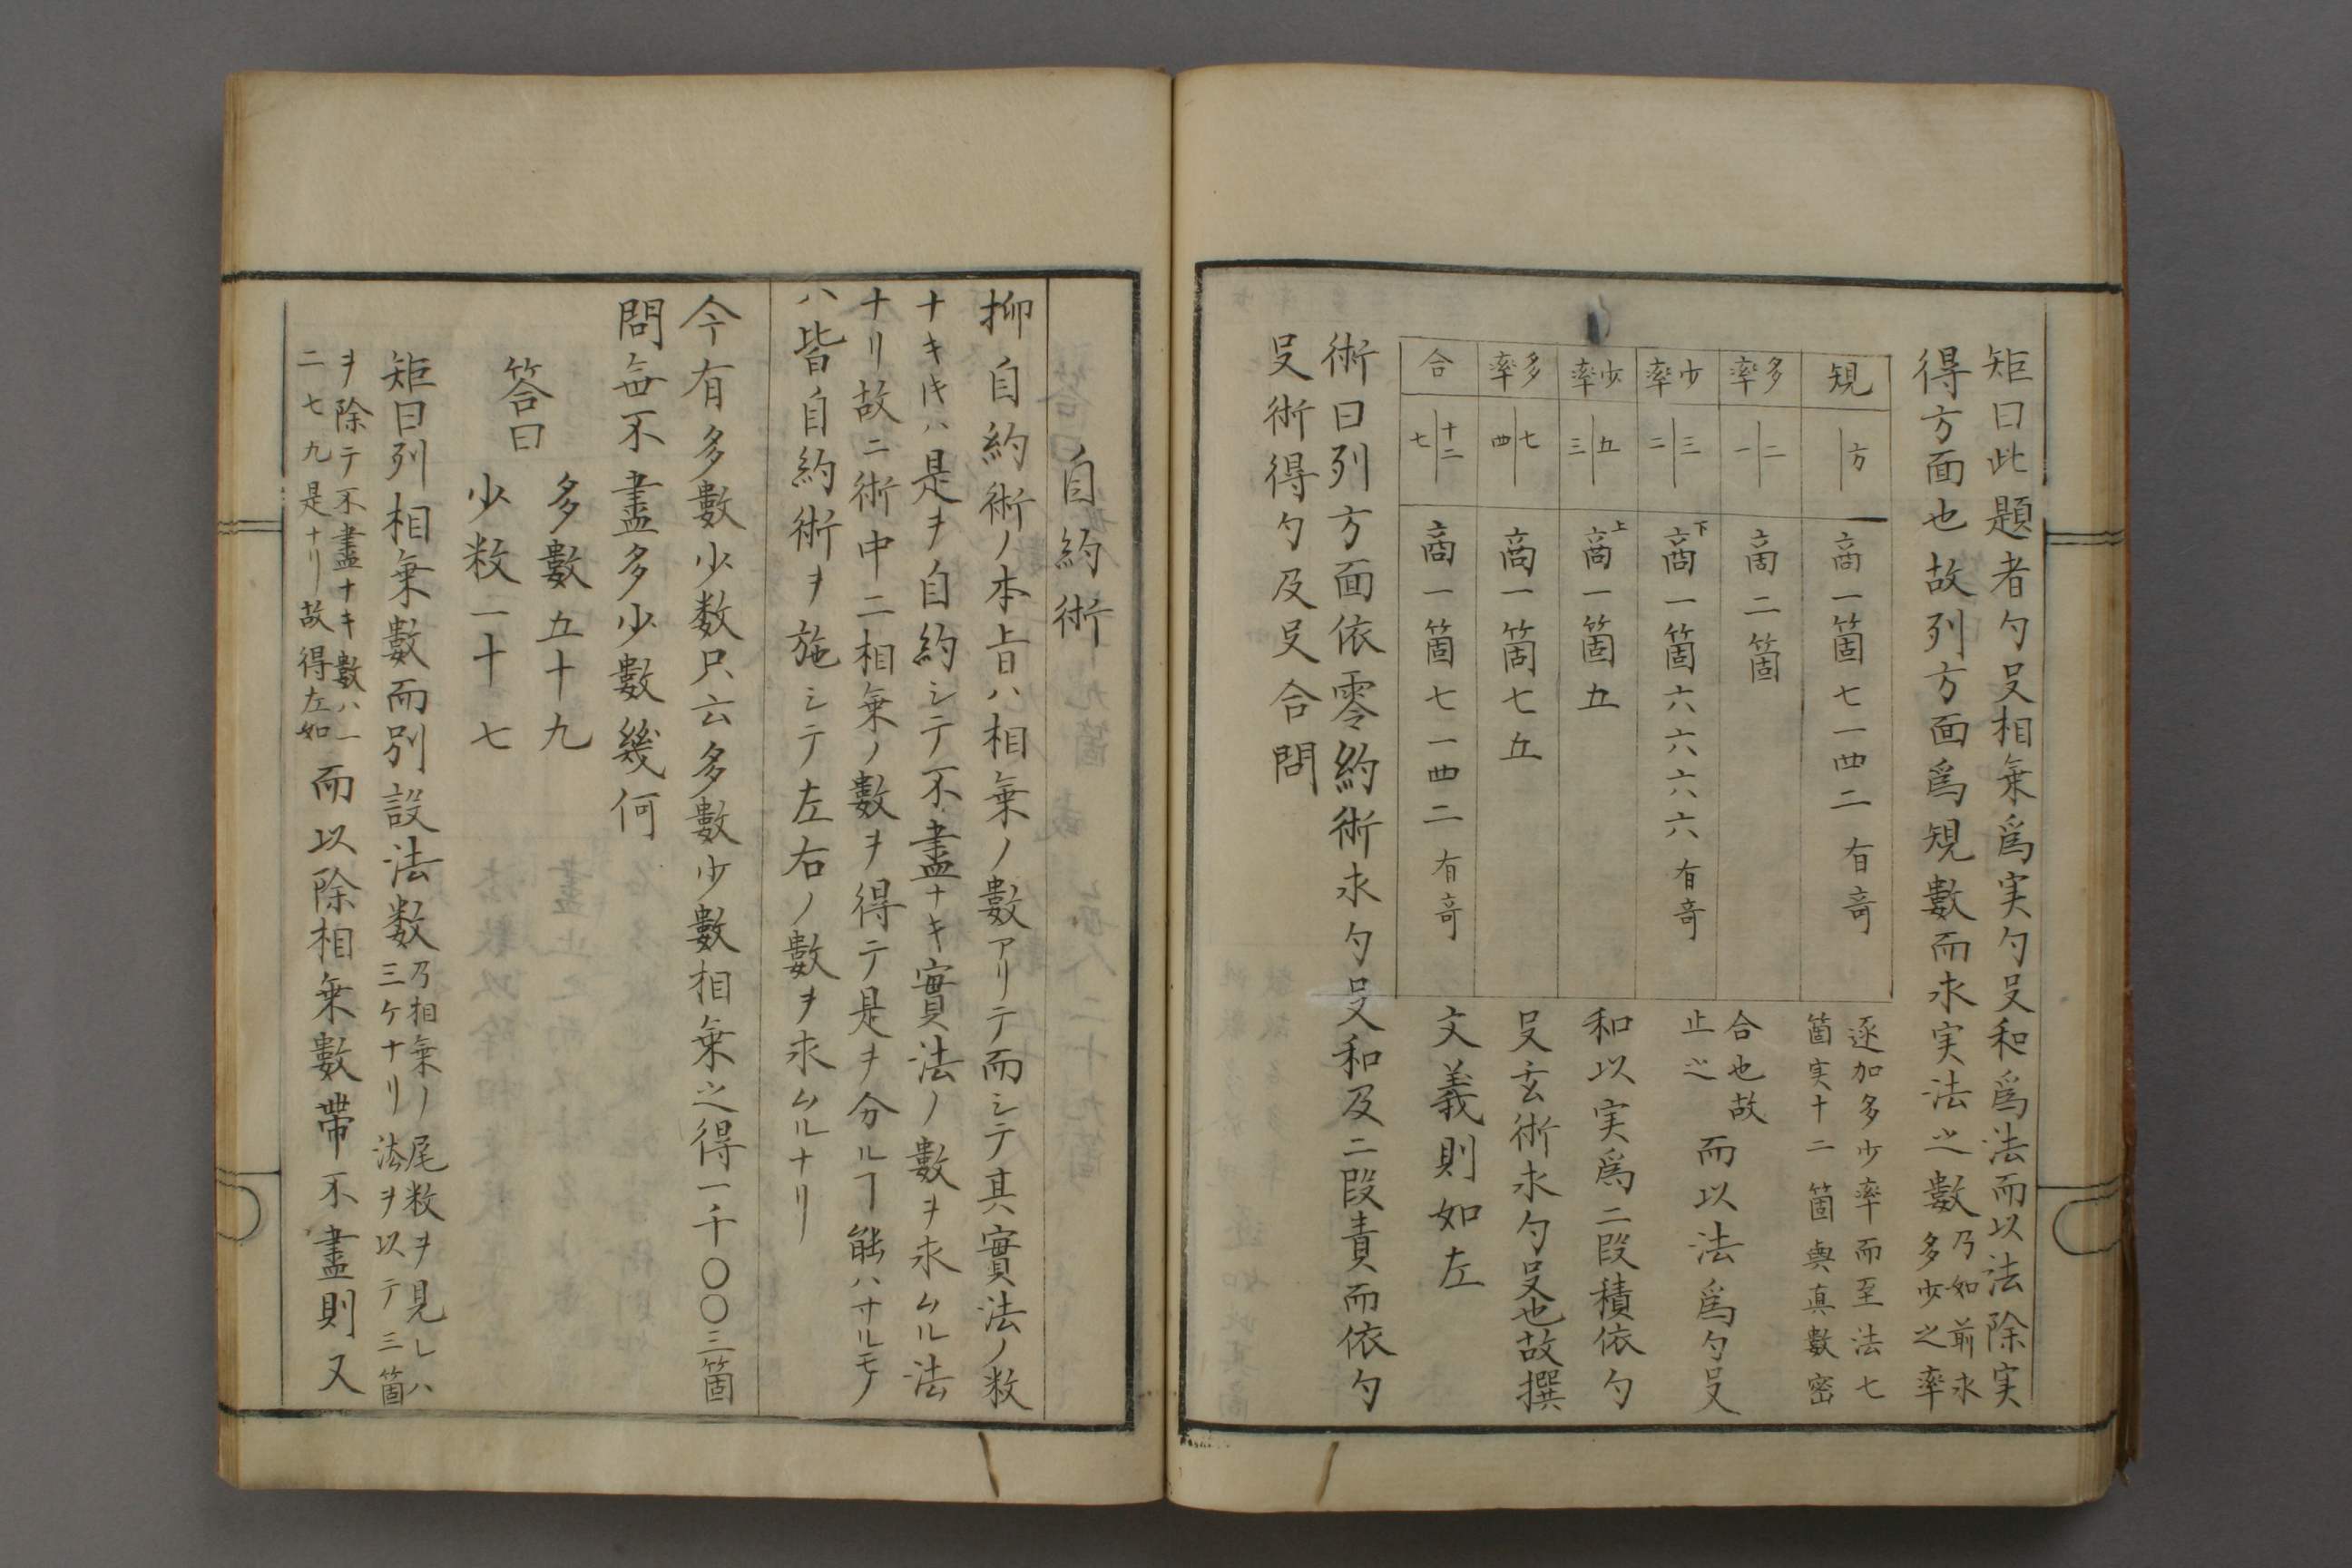 矩曰此題者勺㕝相乗爲実勺㕝和爲法而以法除実
得方面也故列方面爲規數而求実法之數乃如前求
多少之率
規
方
商一箇七一四二有竒
多率
二
一
商二箇
少率
三
二
下商一箇六六六六有竒
少率
五
三
上商一箇五
多率
七
四
商一箇七五
合
十二
七
商一箇七一四二有竒
逐加多少率而至法七
箇実十二箇與真數密
合也故
止之
而以法爲勺㕝
和以実爲二段積依勺
㕝玄術求勺㕝也故撰
文義則如左
術曰列方面依零約術求勺㕝和及二段責而依勺
㕝術得勺及㕝合問
自約術
抑自約術ノ本旨ハ相乗ノ數アリテ而シテ其實法ノ敉
ナキ𪜈ハ是ヲ自約シテ不盡ナキ實法ノ數ヲ求ムル法
ナリ故ニ術中二相乗ノ數ヲ得テ是ヲ分ルヿ能ハサルモノ
ハ皆自約術ヲ施シテ左右ノ數ヲ求ムルナリ
今有多數少数只云多數少數相乗之得一千〇〇三箇
問每不盡多少數幾何
答曰
多數五十九
少敉一十七
矩曰列相乗數而別設法数乃相乗ノ尾敉ヲ見レハ
三ケナリ法ヲ以テ三箇
ヲ除テ不盡ナキ數ハ一
二七九是ナリ故得左如
而以除相乗數帶不盡則又